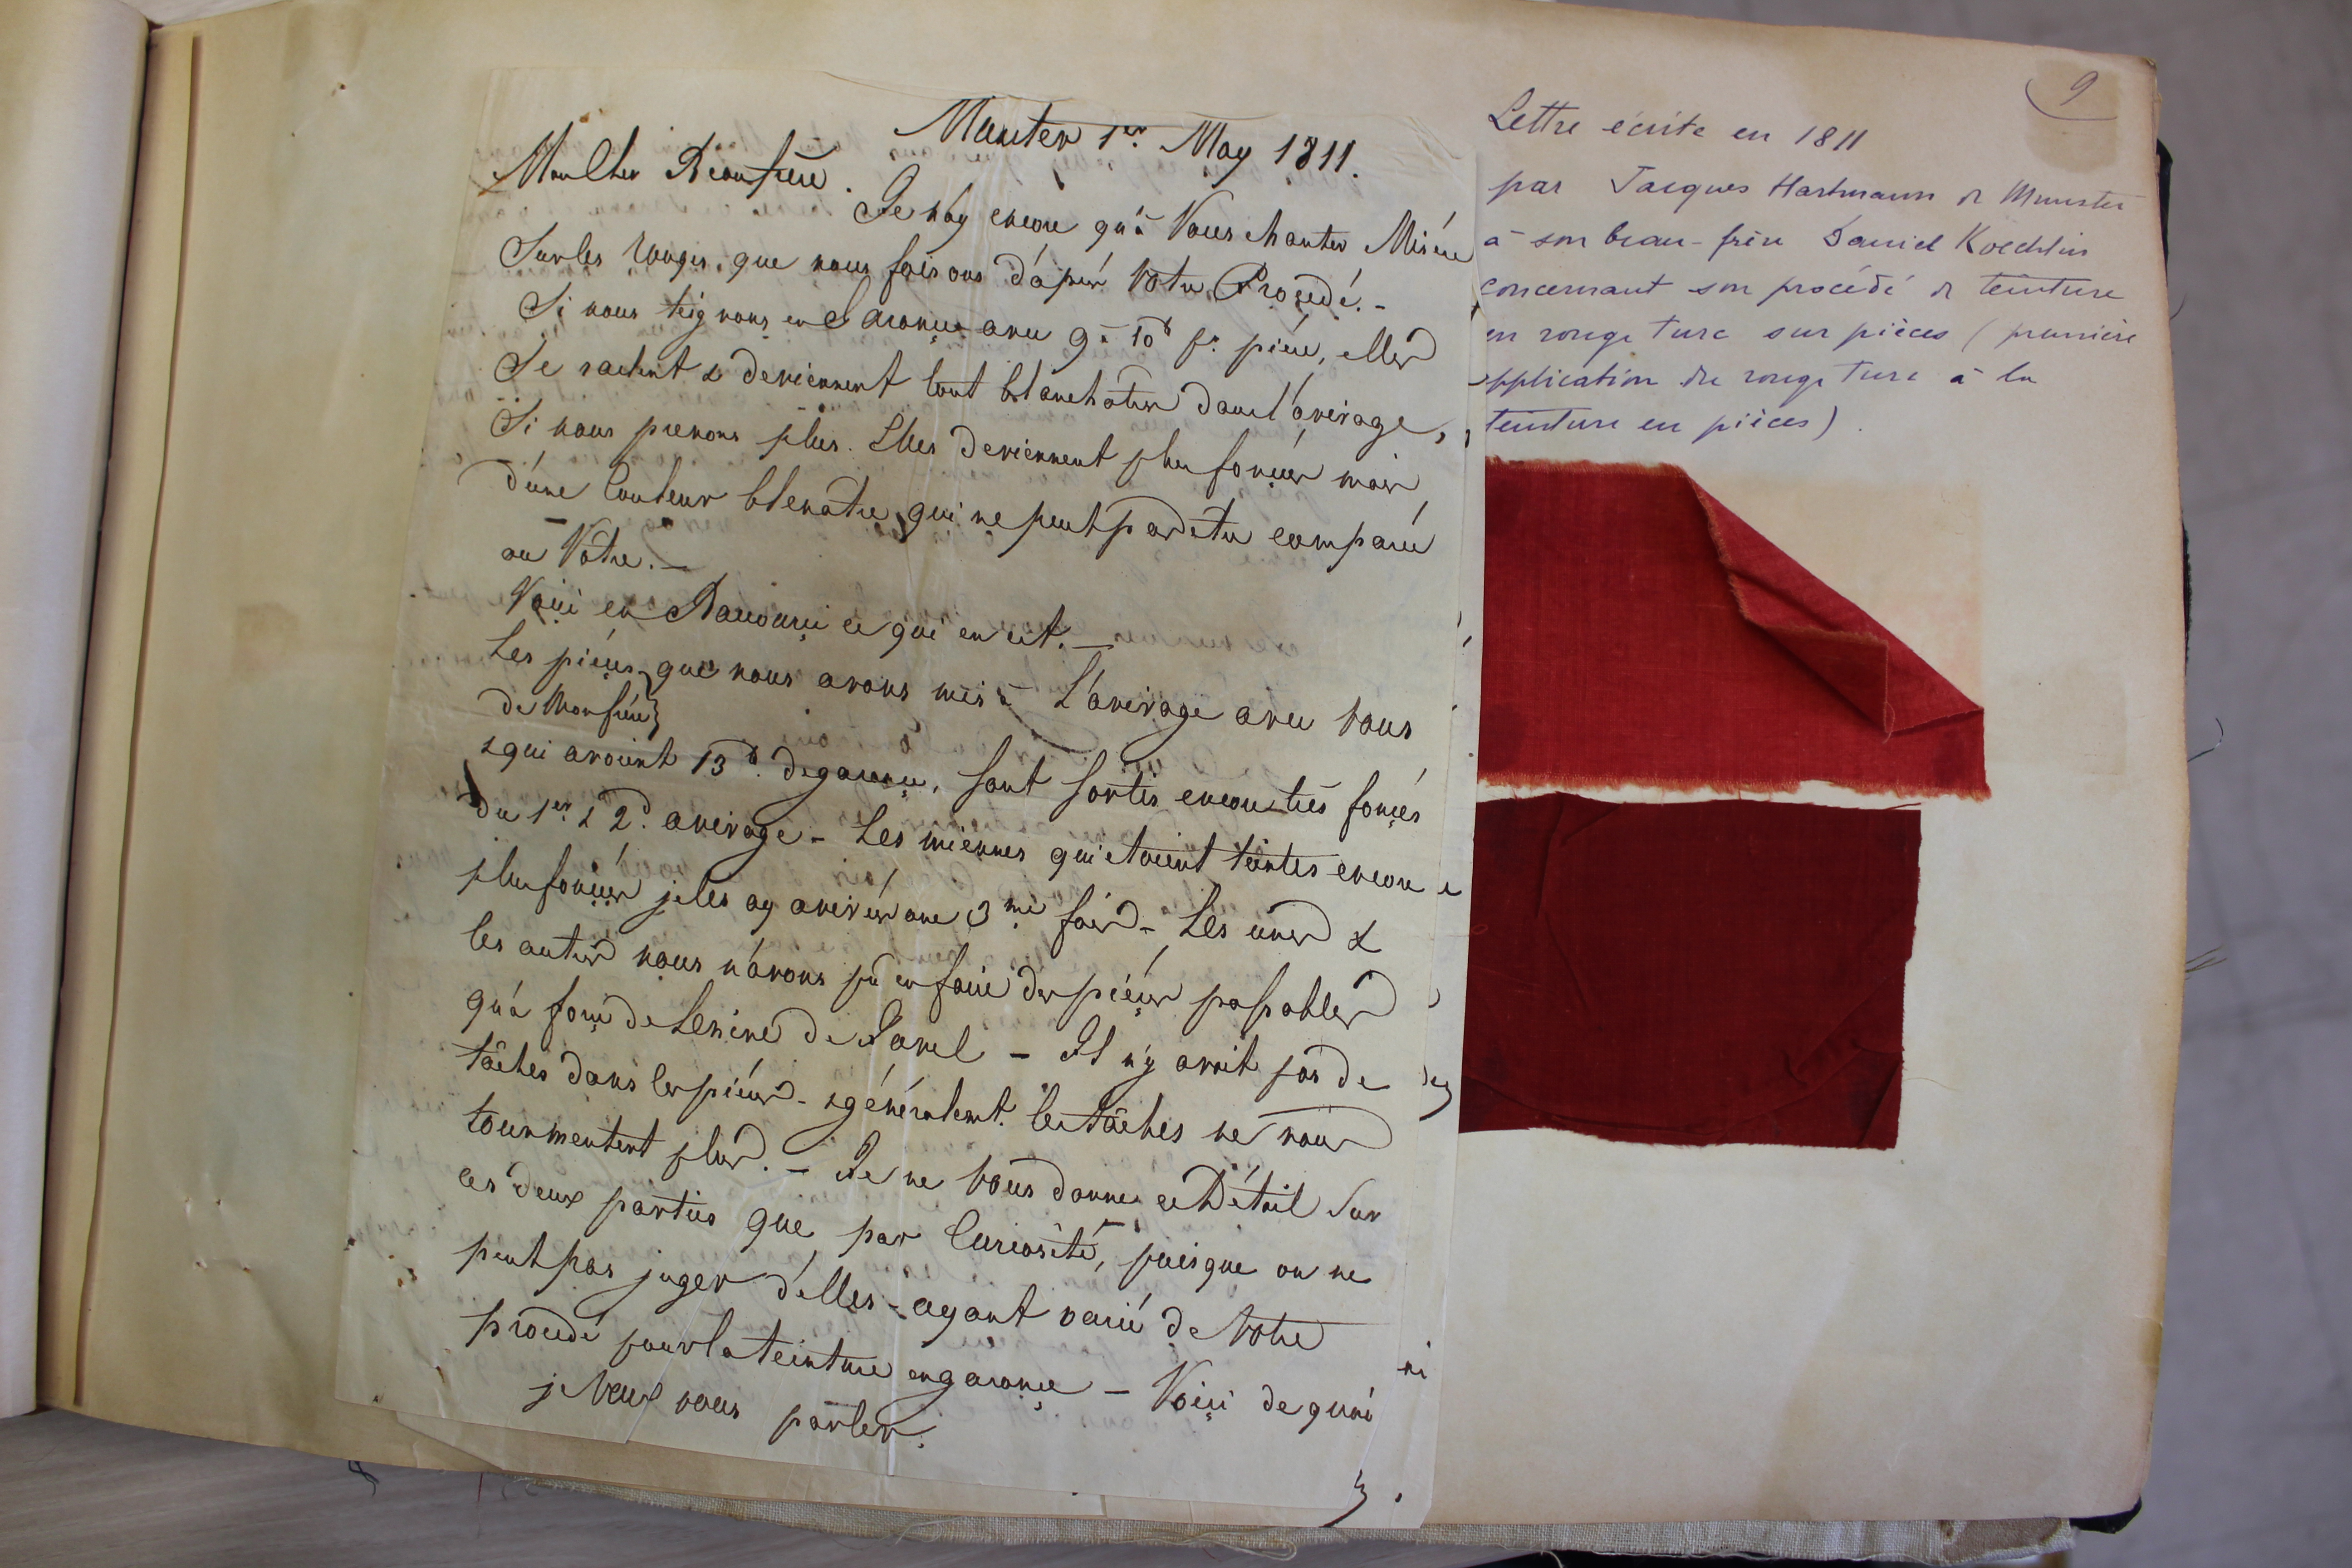 Munster 1er. May 1811.
Mon Cher Beaufrere.
Je n'ay encore qu'à Vous chanter Misère
Sur les rouges que nous faisons d'après Votre Procedé. -
Si nous teignons en Garance avec 9 à 10 pr. pièce, elles
Se raclent & deviennent tout blanchatres dans l'avivage,
Si nous prenons plus. Elles deviennent plus foncées mais
d'une Couleur bleuatre qui ne peut pas etre comparée
au Vôtre. -
Voici en Raccourci ce qui en est. -
Les pièces que nous avons mis à L'avivage avec vous
de Monfrère}
& qui avoient 13 de garance, sont sortis encore très foncés
du 1er. & 2d. avivage - Les miennes qui etoient teintes encore
plus foncées je les ay avivées une 3me. fois - Les unes &
les autres nous n'avons pu en faire des pièces passables
qu'à force de Lessive de Javel - Il n'y avoit pas de
tâches dans les pièces - & généralemt. les tâches ne nous
tourmentent plus. - Je ne vous donne ce Détail Sur
ces deux parties que par Curiosité, puisque on ne
peut pas juger d'elles - ayant varié de Votre
procedé pour la teinture en garance - Voici de quoi
je Veux vous parler.
9
Lettre écrite en 1811
par Jacques Hartmann de Munster
à son beau-frère Daniel Koechlin
concernant son procédé de teinture
en rouge turc sur pièces (première
application du rouge turc à la
teinture en pièces).